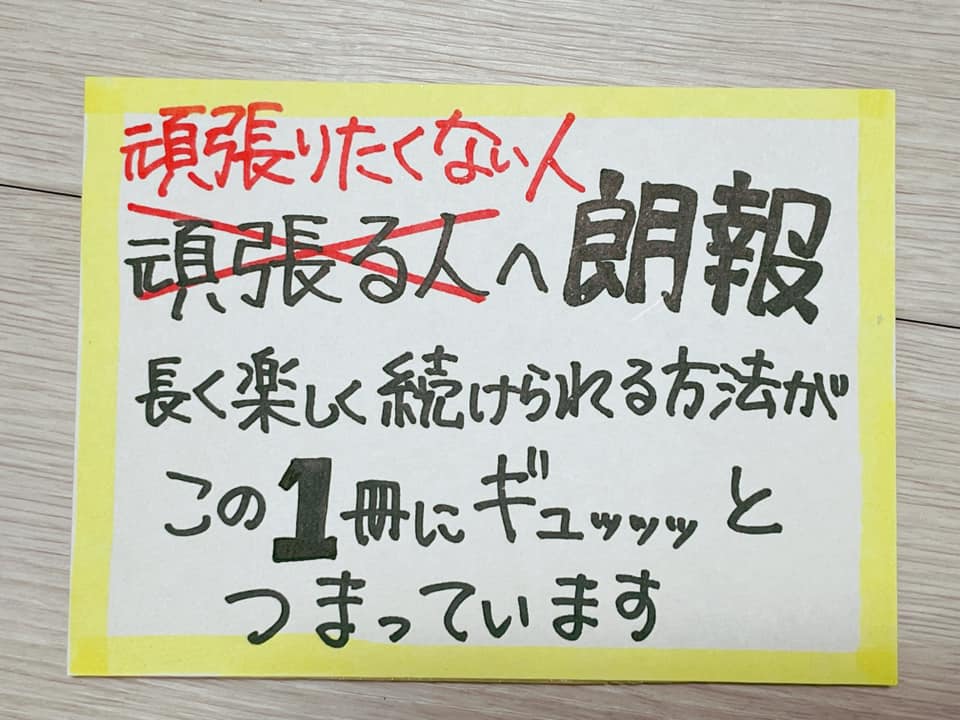 頑張りたくない人
頑張る人へ朗報
長く楽しく続けられる方法が
この1冊にギュッッッと
つまっています